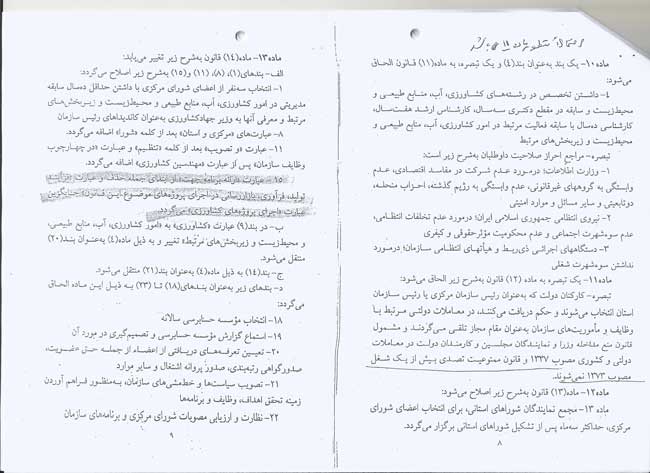 ماده۱۰- یک بند به‌عنوان بند(۴) و یک تبصره، به ماده(۱۱) قانون الحاق
می‌شود:
۴- داشتن تخصص در رشته‌های کشاورزی، آب، منابع طبیعی و
محیط‌زیست و سابقه در مقطع دکتری سه‌سال، کارشناس ارشد هفت‌سال،
کارشناسی ده‌سال با سابقه فعالیت مرتبط در امور کشاورزی، آب، منابع طبیعی و
محیط‌زیست و زیربخش‌های مرتبط
تبصره- مراجع احراز صلاحیت داوطلبان به‌شرح زیر است:
۱- وزارت اطلاعات؛ درمورد عدم شرکت در مفاسد اقتصادی، عدم
وابستگی به گروههای غیرقانونی، عدم وابستگی به رژیم گذشته، احزاب منحله،
دوتابعیتی و سایر مسائل و موارد امنیتی
۲- نیروی انتظامی جمهوری اسلامی ایران؛ درمورد عدم تخلفات انتظامی،
عدم سوءشهرت اجتماعی و عدم محکومیت مؤثرحقوقی و کیفری
۳- دستگاههای اجرائی ذی‌ربط و هیأتهای انتظامی سازمان؛ درمورد
نداشتن سوءشهرت شغلی
ماده۱۱- یک تبصره به ماده (۱۲) قانون به‌شرح زیر الحاق می‌شود:
تبصره- کارکنان دولت که به‌عنوان رئیس سازمان مرکزی یا رئیس سازمان
استان انتخاب می‌شوند و حکم دریافت می‌کنند، در معاملات دولتی مرتبط با
وظایف و مأموریت‌های سازمان به‌عنوان مقام مجاز تلقی می‌گردند و مشمول
قانون منع مداخله وزرا و نمایندگان مجلسین و کارمندان دولت در معاملات
دولتی و کشوری مصوب ۱۳۳۷ و قانون ممنوعیت تصدی بیش از یک شغل
مصوب ۱۳۷۳ نمی‌شوند.
ماده۱۲- ماده(۱۳) قانون به‌شرح زیر اصلاح می‌شود:
ماده ۱۳- مجمع نمایندگان شوراهای استانی، برای انتخاب اعضای شورای
مرکزی، حداکثر سه‌ماه پس از تشکیل شوراهای استانی برگزار می‌گردد.
۸
ماده۱۳- ماده(۱۴) قانون به‌شرح زیر تغییر می‌یابد:
الف- بندهای(۱)، (۸)، (۱۱) و(۱۵) به‌شرح زیر اصلاح می‌گردد:
۱- انتخاب سه‌نفر از اعضای شورای مرکزی با داشتن حداقل ده‌سال سابقه
مدیریتی در امور کشاورزی، آب، منابع طبیعی و محیط‌زیست و زیربخش‌های
مرتبط و معرفی آنها به وزیر جهادکشاورزی به‌عنوان کاندیداهای رئیس سازمان
۸- عبارت‌های «مرکزی و استان» بعد از کلمه «شورا» اضافه می‌گردد.
۱۱- عبارت «و تصویب» بعد از کلمه «تنظیم» و عبارت «در چهارچوب
وظایف سازمان» پس از عبارت «مهندسین کشاورزی» اضافه می‌گردد.
۱۵- عبارت «ارائه برنامه جهت» از ابتدای جمله حذف و عبارت
تولید، فرآوری، بازاررسانی در اجرای پروژه‌های موضوع این قانون» جایگزین
عبارت «اجرای پروژه‌های کشاورزی» می‌گردد.
ب- در بند(۹) عبارت «کشاورزی» به «امور کشاورزی، آب، منابع طبیعی،
و محیط‌زیست و زیربخش‌های مرتبط» تغییر و به ذیل ماده(۴) به‌عنوان بند(۲۰)
منتقل می‌شود.
ج- بند(۱۴) به ذیل ماده(۴) به‌عنوان بند(۲۱) منتقل می‌شود.
د- بندهای زیر به‌عنوان بندهای(۱۸) تا (۲۳) به ذیل این ماده الحاق
می‌گردد:
۱۸- انتخاب مؤسسه حسابرسی سالانه
۱۹- استماع گزارش مؤسسه حسابرسی و تصمیم‌گیری در مورد آن
۲۰- تعیین تعرفه‌های دریافتی از اعضاء از جمله حق عضویت،
صدورگواهی رتبه‌بندی، صدور پروانه اشتغال و سایر موارد
۲۱- تصویب سیاست‌ها و خط‌مشی‌های سازمان، به‌منظور فراهم آوردن
زمینه تحقق اهداف، وظایف و برنامه‌ها
۲۲- نظارت و ارزیابی مصوبات شورای مرکزی و برنامه‌های سازمان
۹